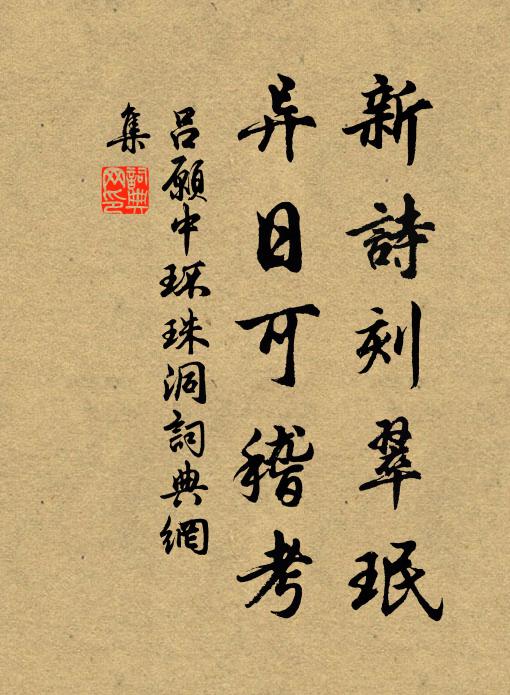 新詩刻翠珉
异日可稽考
吕願中环珠洞詞典網
集
詞典網印